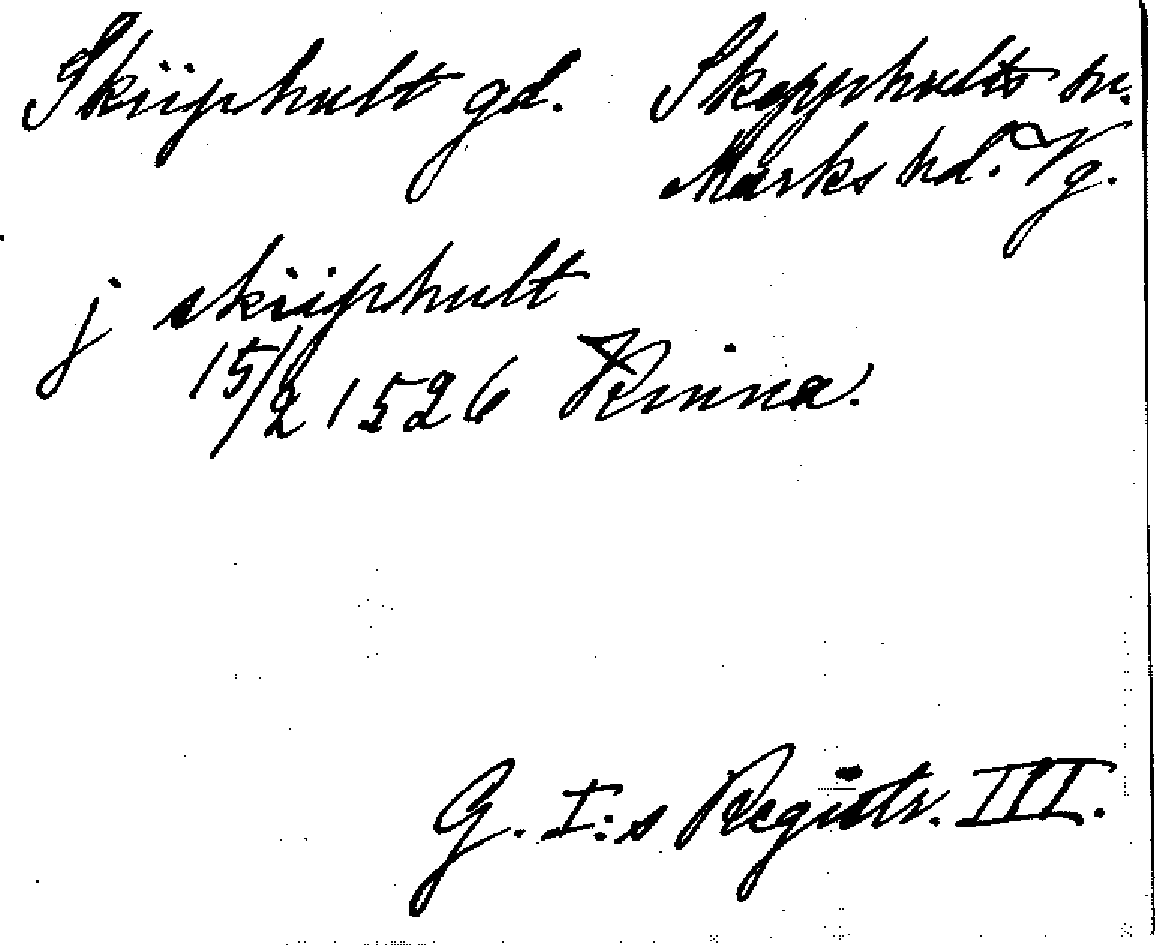 Skiiphult gd. Skepphults sn.
Marks hd. Vg.
j skiiphult
15/2 1526 Kinna.
G. I:s Registr. III.